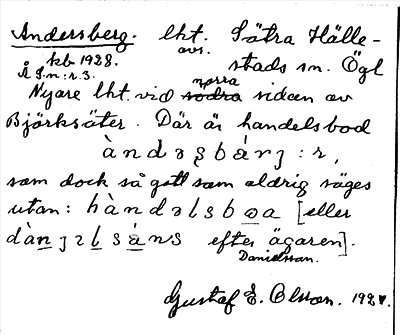 Andersberg. lht. Sätra Hälle-
avs.
kb 1928. stads sn. Ögl
Å S.n:r.3.
norra
Nyare lht. vid södra sidan av
Björksäter. Där är handelsbod
som dock så gott som aldrig säges
utan: [eller
efter ägaren].
Danielsson.
Gustaf E. Olsson.